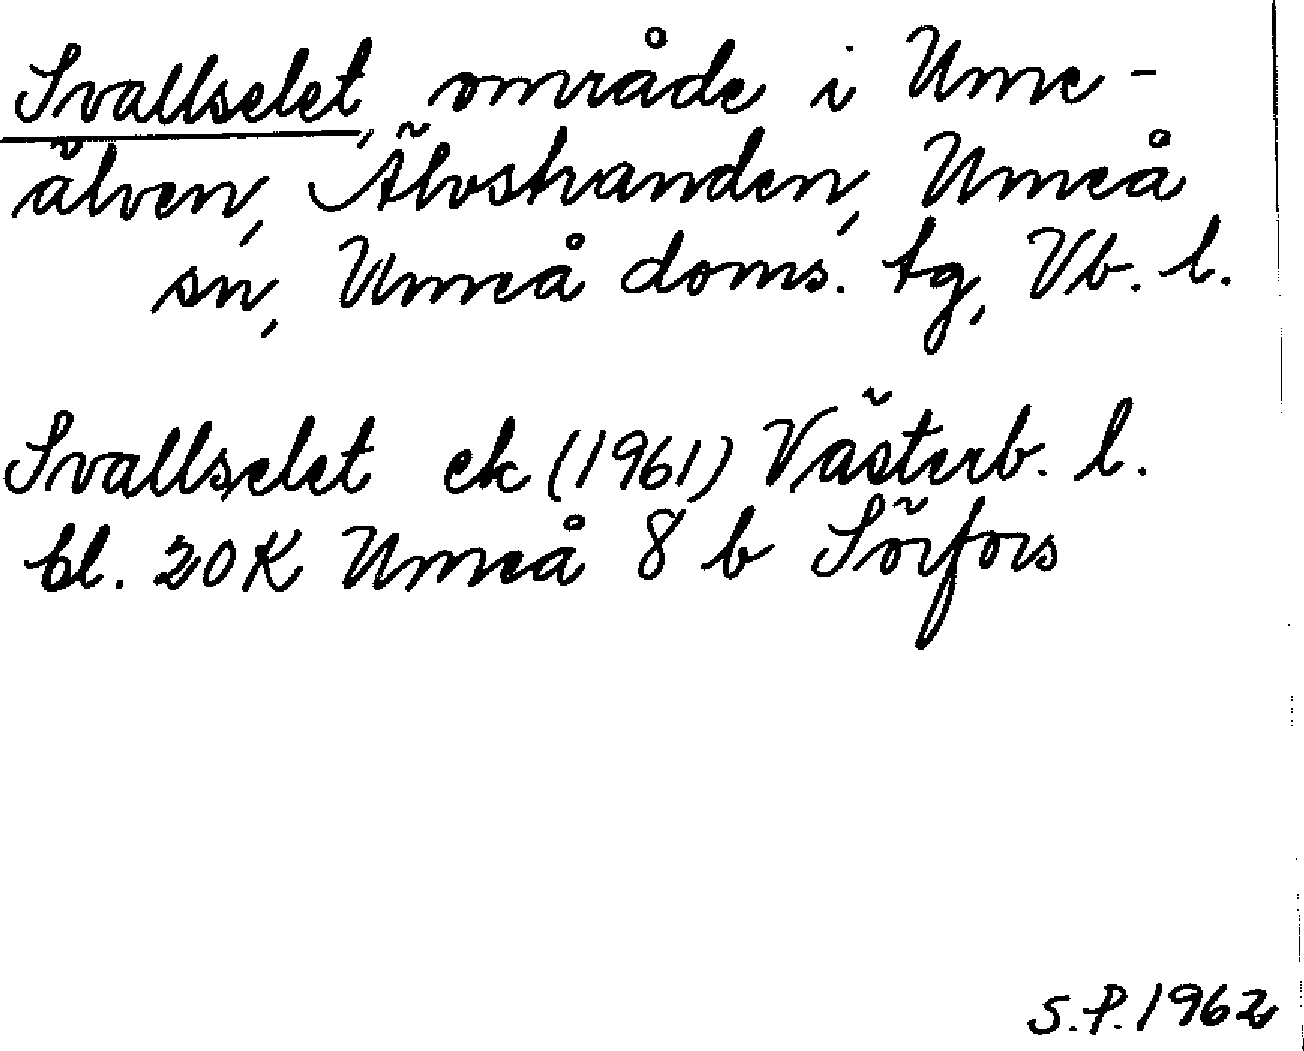 Svallselet, område i Ume-
älven, Älvstranden, Umeå
sn, Umeå doms. tg, Vb. l.
Svallselet ek (1961) Västerb. l.
bl. 20K Umeå 8 b Sörfors
S.P. 1962